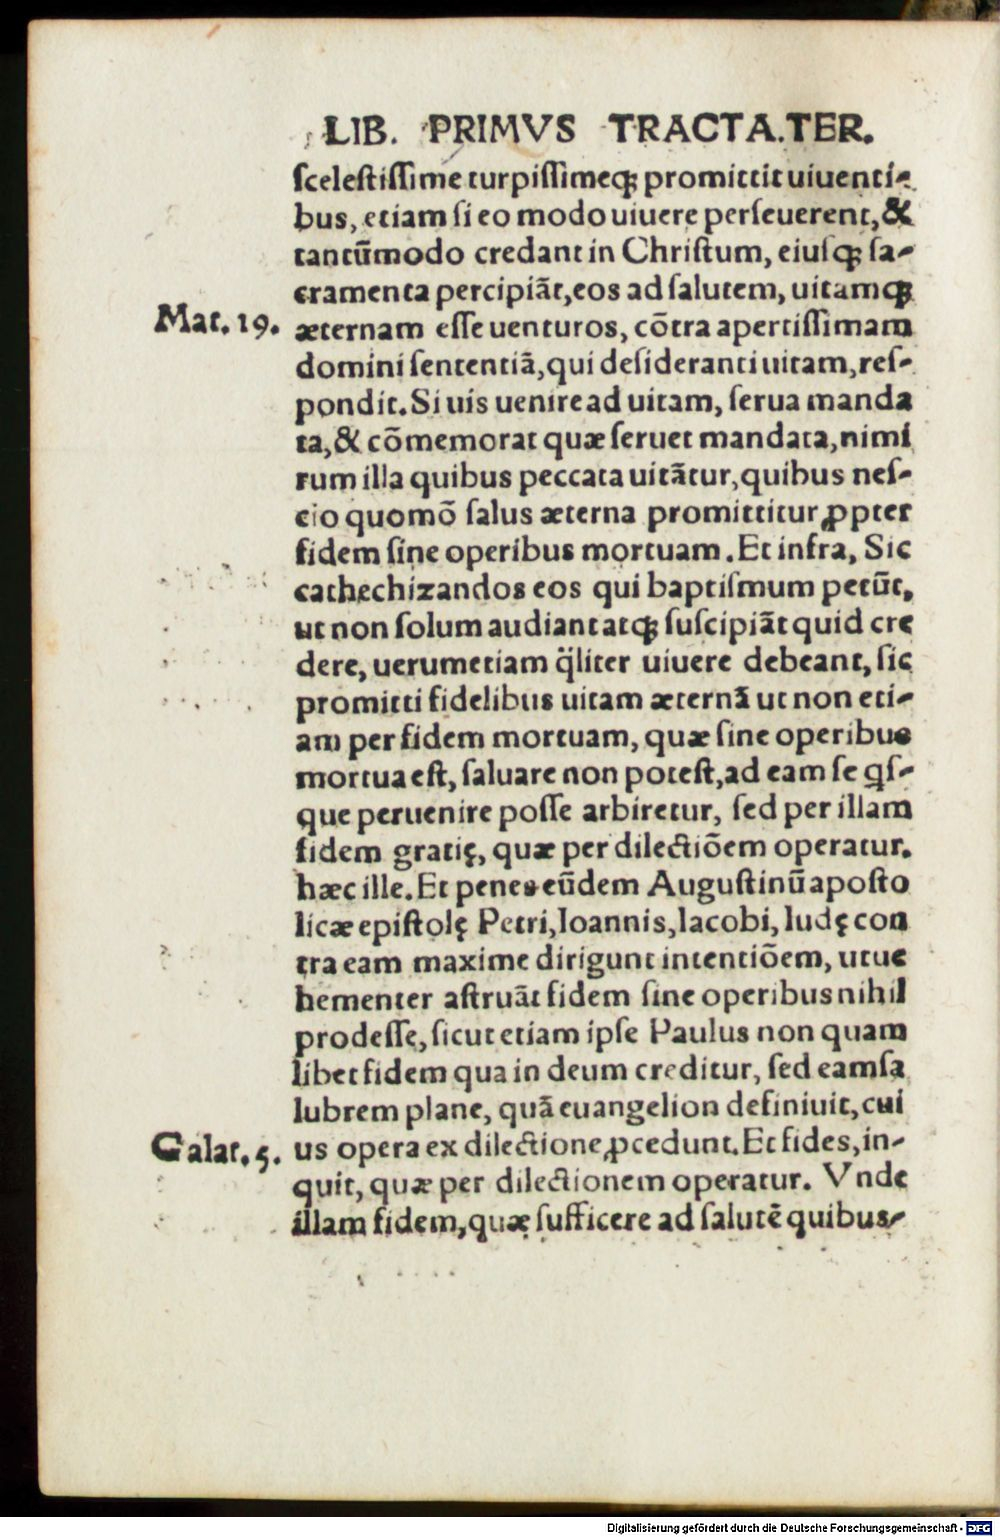 LIB. PRIMVS TRACTA.TER.
sceleſtiſſime turpiſſimeqꝫ promittit uiuenti-
bus, etiam ſi eo modo uiuere perſeuerent, &
tantūmodo credant in Chriſtum, eiuſqꝫ ſa-
cramenta percipiāt, eos ad ſalutem, uitamqꝫ
Mat. 19. æternam eſſe uenturos, cōtra apertiſſimam
domini ſententiā, qui deſideranti uitam, reſ-
pondit. Si uis uenire ad uitam, ſerua manda
ta, & cōmemorat quæ ſeruet mandata, nimi
rum illa quibus peccata uitātur, quibus neſ-
cio quomō ſalus æterna promittitur ꝓpter
fidem ſine operibus mortuam. Et infra, Sic
cathechizandos eos qui baptiſmum petūt,
ut non ſolum audiant atqꝫ ſuſcipiāt quid cre
dere, uerumetiam q̈liter uiuere debeant, ſic
promitti fidelibus uitam æternā ut non eti-
am per fidem mortuam, quæ ſine operibus
mortua eſt, ſaluare non poteſt, ad eam ſe qſ-
que peruenire poſſe arbiretur, ſed per illam
fidem gratię, quæ per dilectiōem operatur.
hæc ille. Et penes eūdem Auguſtinū apoſto
licæ epiſtolę Petri, Ioannis, Iacobi, Iudę con
tra eam maxime dirigunt intentiōem, ut ue
hementer aſtruāt fidem ſine operibus nihil
prodeſſe, ſicut etiam ipſe Paulus non quam
libet fidem qua in deum creditur, ſed eam ſa
lubrem plane, quā euangelion definiuit, cui
Galat. 5. us opera ex dilectione ꝓcedunt. Et fides, in-
quit, quæ per dilectionem operatur. Vnde
illam fidem, quæ ſufficere ad ſalutē quibuſ-
Digitalisierung gefördert durch die Deutsche Forschungsgemeinschaft - DFG